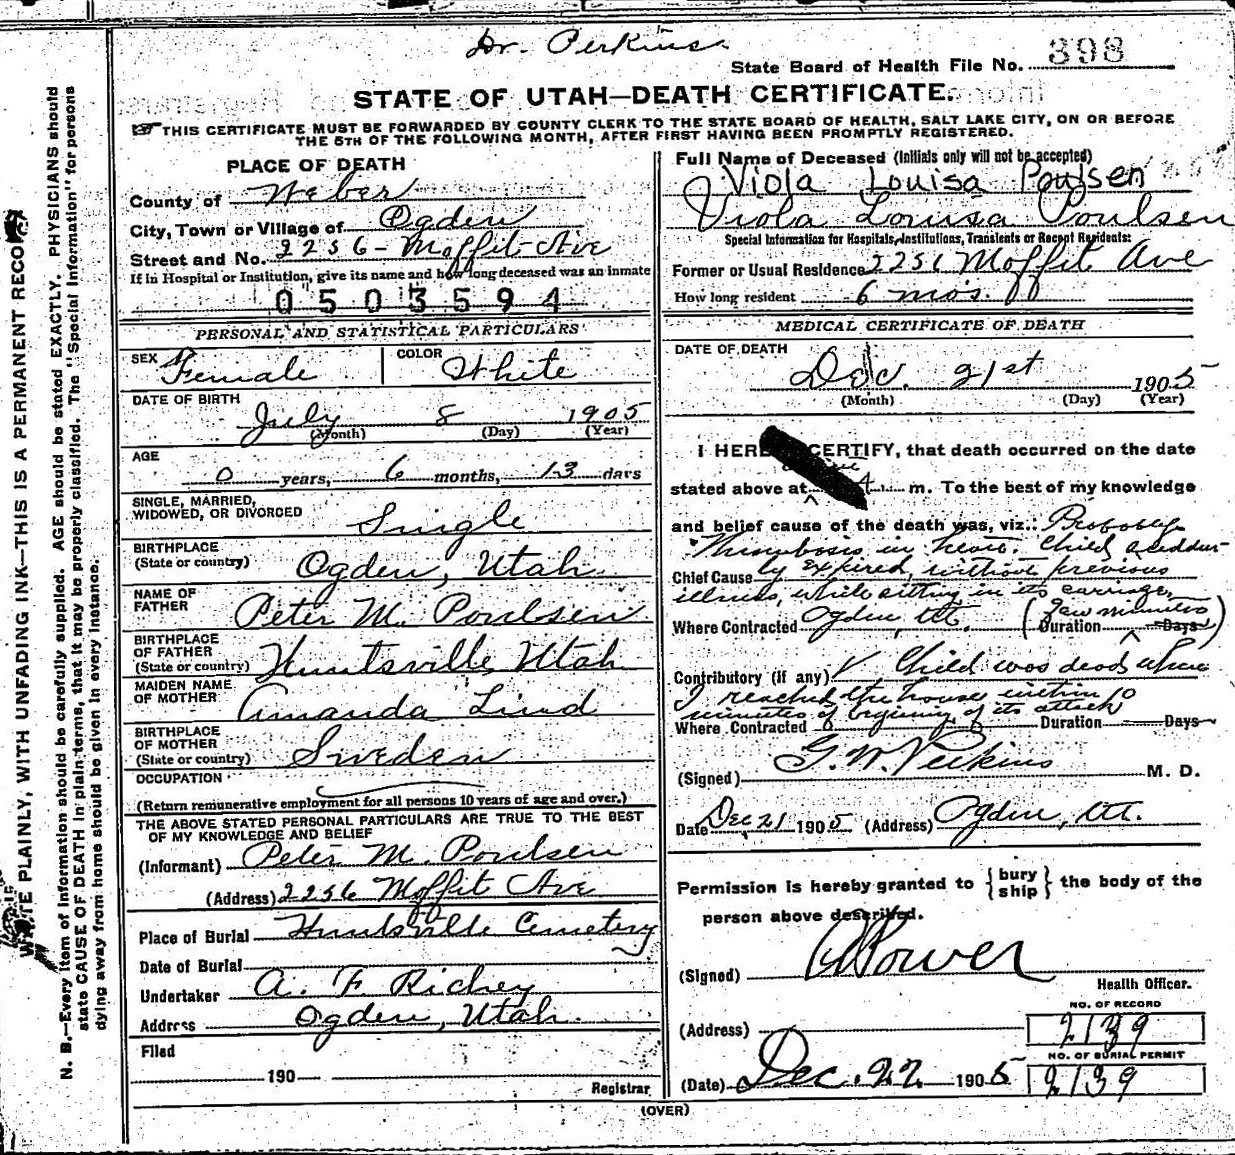 Dr. Perkins
State Board of Health File No. 398
STATE OF UTAH—DEATH CERTIFICATE.
THIS CERTIFICATE MUST BE FORWARDED BY COUNTY CLERK TO THE STATE BOARD OF HEALTH, SALT LAKE CITY, ON OR BEFORE
THE 5TH OF THE FOLLOWING MONTH, AFTER FIRST HAVING BEEN PROMPTLY REGISTERED.
WRITE PLAINLY, WITH UNFADING INK—THIS IS A PERMANENT RECORD
N. B.—Every item of information should be carefully supplied. AGE should be stated EXACTLY. PHYSICIANS should
state CAUSE OF DEATH in plain terms, that it may be properly classified. The "Special Information" for persons
dying away from home should be given in every instance.
PLACE OF DEATH
County of Weber
City, Town or Village of Ogden
Street and No. 2256 - Moffit Ave
If in Hospital or Institution, give its name and how long deceased was an inmate
0503594
PERSONAL AND STATISTICAL PARTICULARS
SEX Female COLOR White
DATE OF BIRTH
July 8 1905
(Month) (Day) (Year)
AGE
0 years, 6 months, 13 days
SINGLE, MARRIED,
WIDOWED, OR DIVORCED Single
BIRTHPLACE
(State or country) Ogden, Utah
NAME OF
FATHER Peter M. Poulsen
BIRTHPLACE
OF FATHER
(State or country) Huntsville Utah
MAIDEN NAME
OF MOTHER Amanda Lind
BIRTHPLACE
OF MOTHER
(State or country) Sweden
OCCUPATION
(Return remunerative employment for all persons 10 years of age and over.)
THE ABOVE STATED PERSONAL PARTICULARS ARE TRUE TO THE BEST
OF MY KNOWLEDGE AND BELIEF
(Informant) Peter M. Poulsen
(Address) 2256 Moffit Ave
Place of Burial Huntsville Cemetery
Date of Burial
Undertaker A. F. Richey
Address Ogden, Utah.
Filed
190
Registrar
Full Name of Deceased (Initials only will not be accepted)
Viola Louisa Poulsen
Viola Louisa Poulsen
Special Information for Hospitals, Institutions, Transients or Recent Residents:
Former or Usual Residence 2256 Moffit Ave
How long resident 6 mos.
MEDICAL CERTIFICATE OF DEATH
DATE OF DEATH
Dec. 21st 1905
(Month) (Day) (Year)
I HEREBY CERTIFY, that death occurred on the date
stated above at m. To the best of my knowledge
and belief cause of the death was, viz.: Probably
Thrombosis in heart. Child sudden-
Chief Cause ly expired, without previous
illness, while sitting in its carriage,
Where Contracted Ogden, Ut. (Few minutes
Duration Days)
Contributory (if any) Child was dead when
I reached the house within 10
minutes of begining of its attack
Where Contracted Duration Days
(Signed) G. W. Perkins M. D.
Date Dec 21 1905 (Address) Ogden, Ut.
Permission is hereby granted to {bury ship} the body of the
person above described.
(Signed) Power
Health Officer.
(Address)
NO. OF RECORD
2139
NO. OF BURIAL PERMIT
2139
(Date) Dec. 22 1905
(OVER)